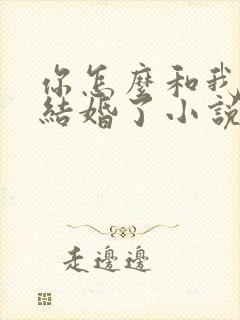 你怎麼和我
結婚了小說
走邊邊